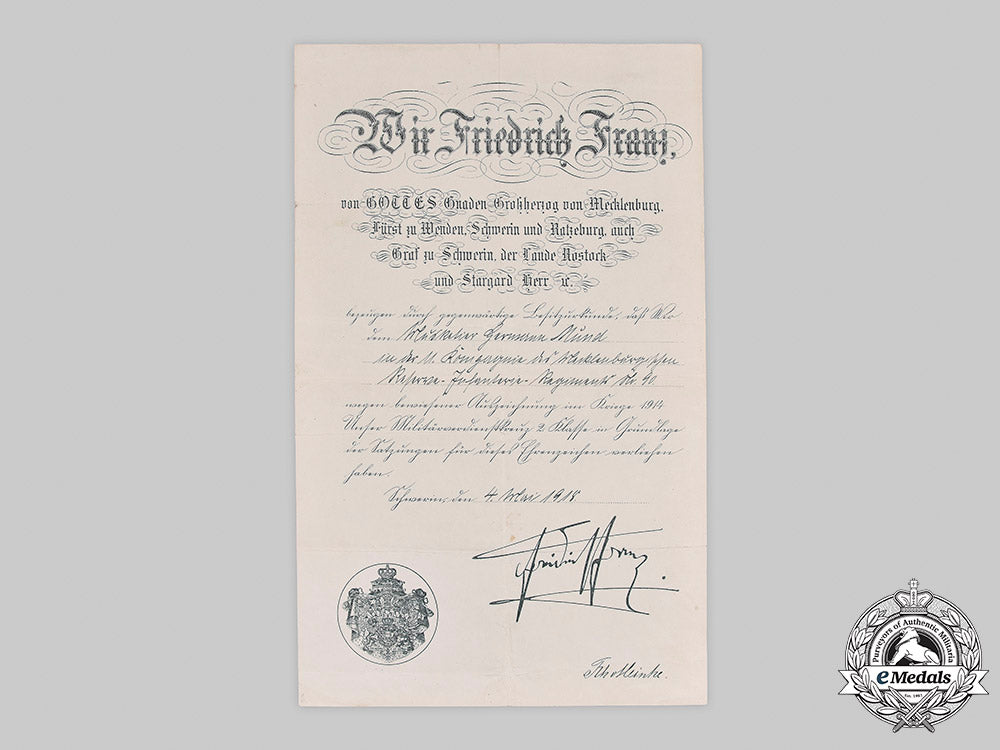 Wir Friedrich Franz,
von GOTTES Gnaden Großherzog von Mecklenburg,
Fürst zu Wenden, Schwerin und Ratzeburg, auch
Graf zu Schwerin, der Lande Rostock
und Stargard Herr ꝛc.
bezeugen durch gegenwärtige Besitzurkunde, daß Wir
dem Musketier Hermann Mund
in der 11. Kompagnie des Mecklenburgischen
Reserve-Infanterie-Regiments
wegen bewiesener Auszeichnung im Kriege 1914
Unser Militärverdienstkreuz 2. Klasse in Grundlage
der Satzungen für dieses Ehrenzeichen verliehen
haben.
Schwerin, den 4. Mai 1918
Friedrich Franz
Purveyors of Authentic Militaria
eMedals